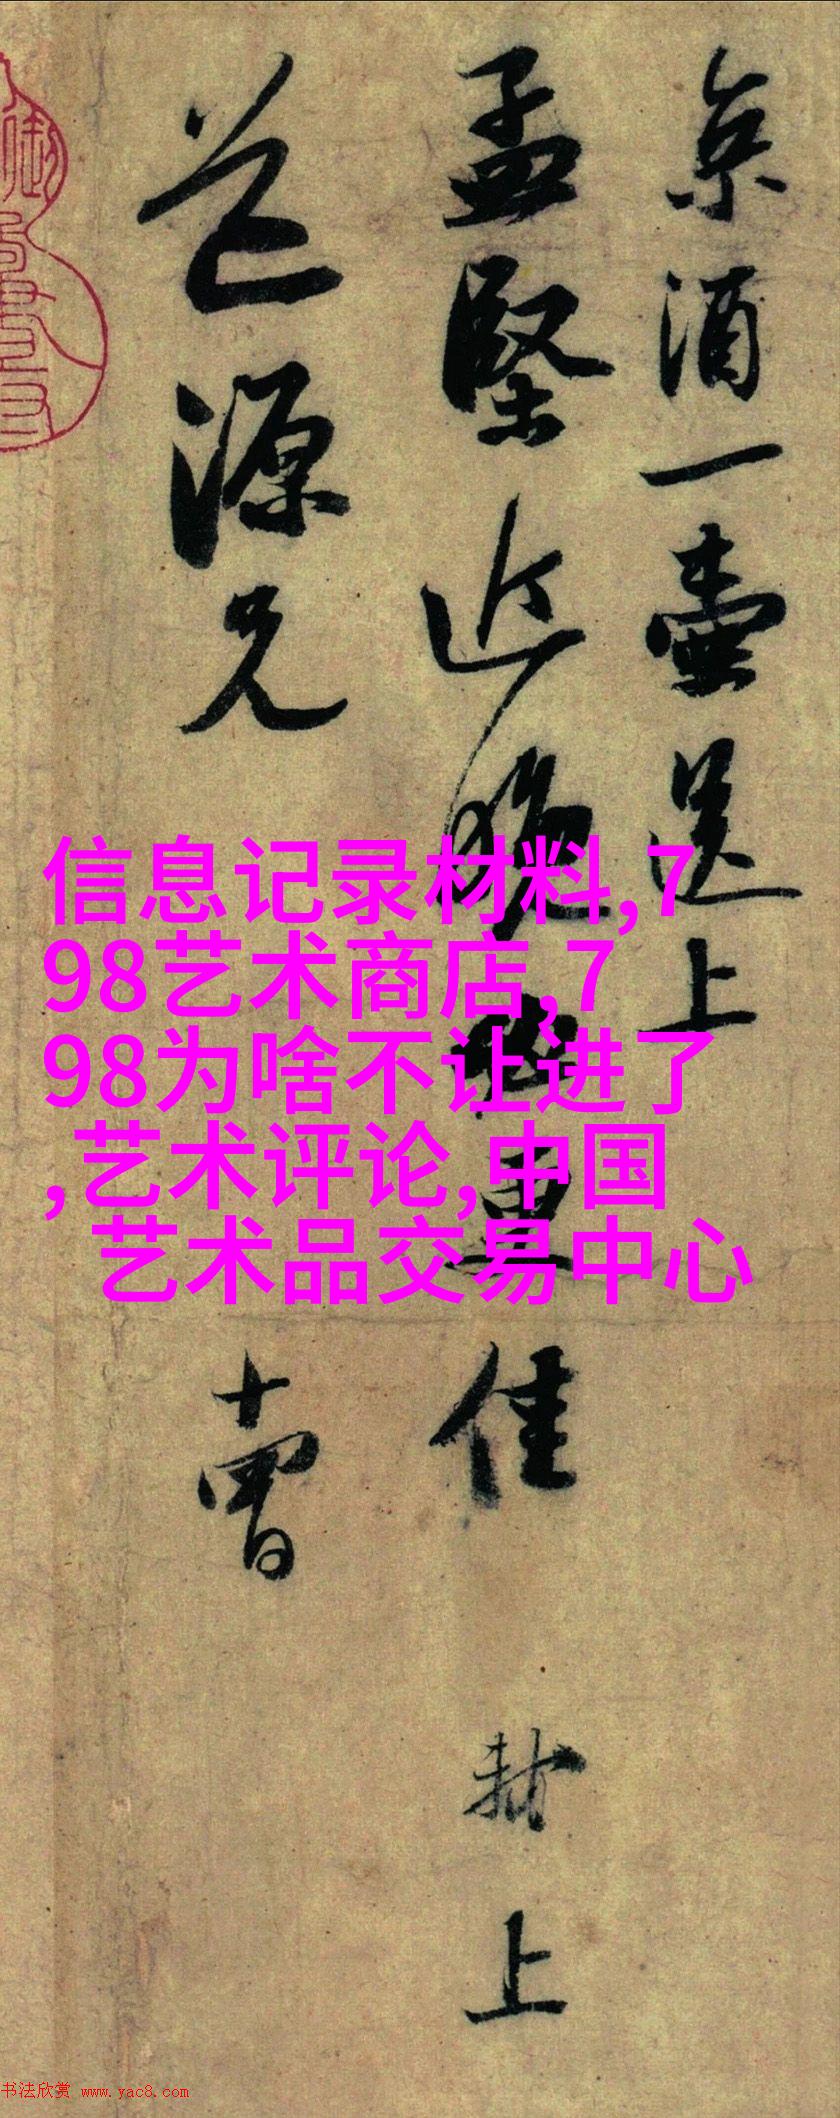 京酒一壷送上
孟堅近晚必重佳
道源兄
十曹
黻上
信息记录材料,7
98艺术商店,7
98为啥不让进了
,艺术评论,中国
艺术品交易中心
书法欣赏 www.yac8.com